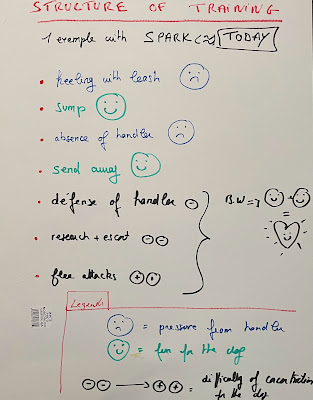 STRUCTURE OF TRAINING
1 exemple with SPARK (2) TODAY
• heeling with leash
• Jump
• absence of handler
• send away
• défense of handler -
• research + escort - -
• flee attacks + +
B.W =>
=
Legends
= pressure from handler
= fun for the dog
- - → + + = difficulty of concentration for the dog